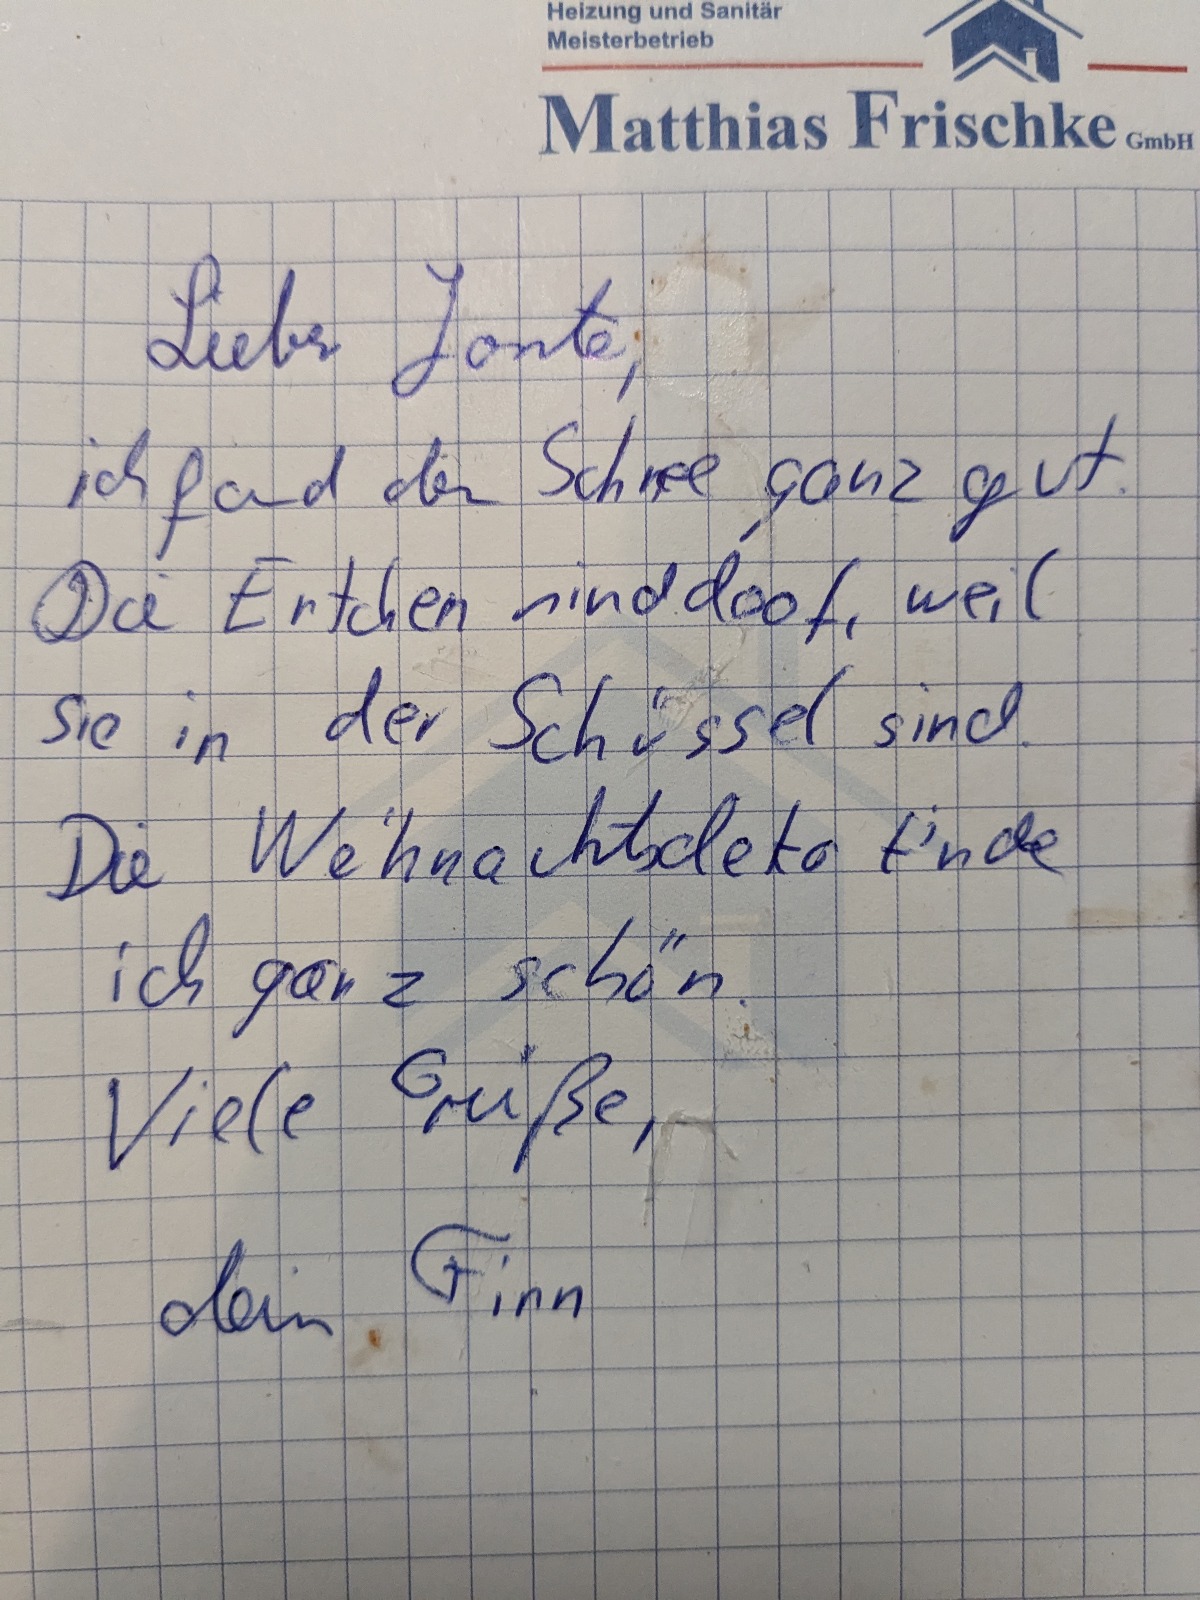 Heizung und Sanitär
Meisterbetrieb
Matthias Frischke GmbH
Lieber Jonte,
ich fand den Schnee ganz gut.
Die Entchen sind doof, weil
sie in der Schüssel sind.
Die Weihnachtsdeko finde
ich ganz schön.
Viele Grüße,
dein Finn